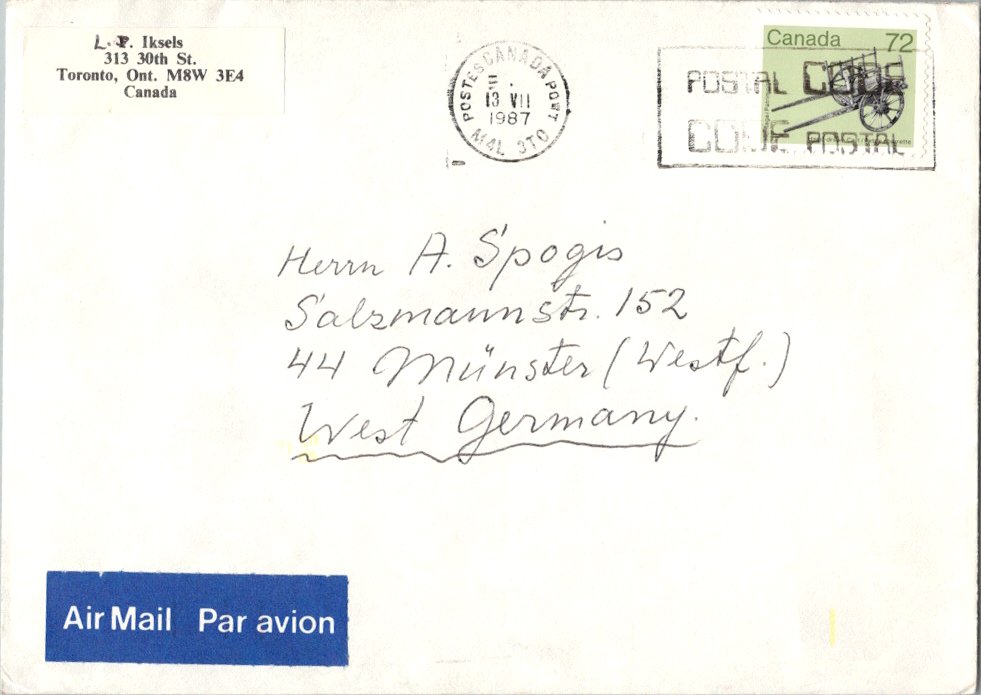 L. P. Iksels
313 30th St.
Toronto, Ont. M8W 3E4
Canada
POSTES CANADA POST
13 VII
1987
M4L 3T0
Canada 72
POSTAL CODE
CODE POSTAL
Herrn A. Spogis
Salzmannstr. 152
44 Münster (Westf.)
West Germany.
Air Mail Par avion